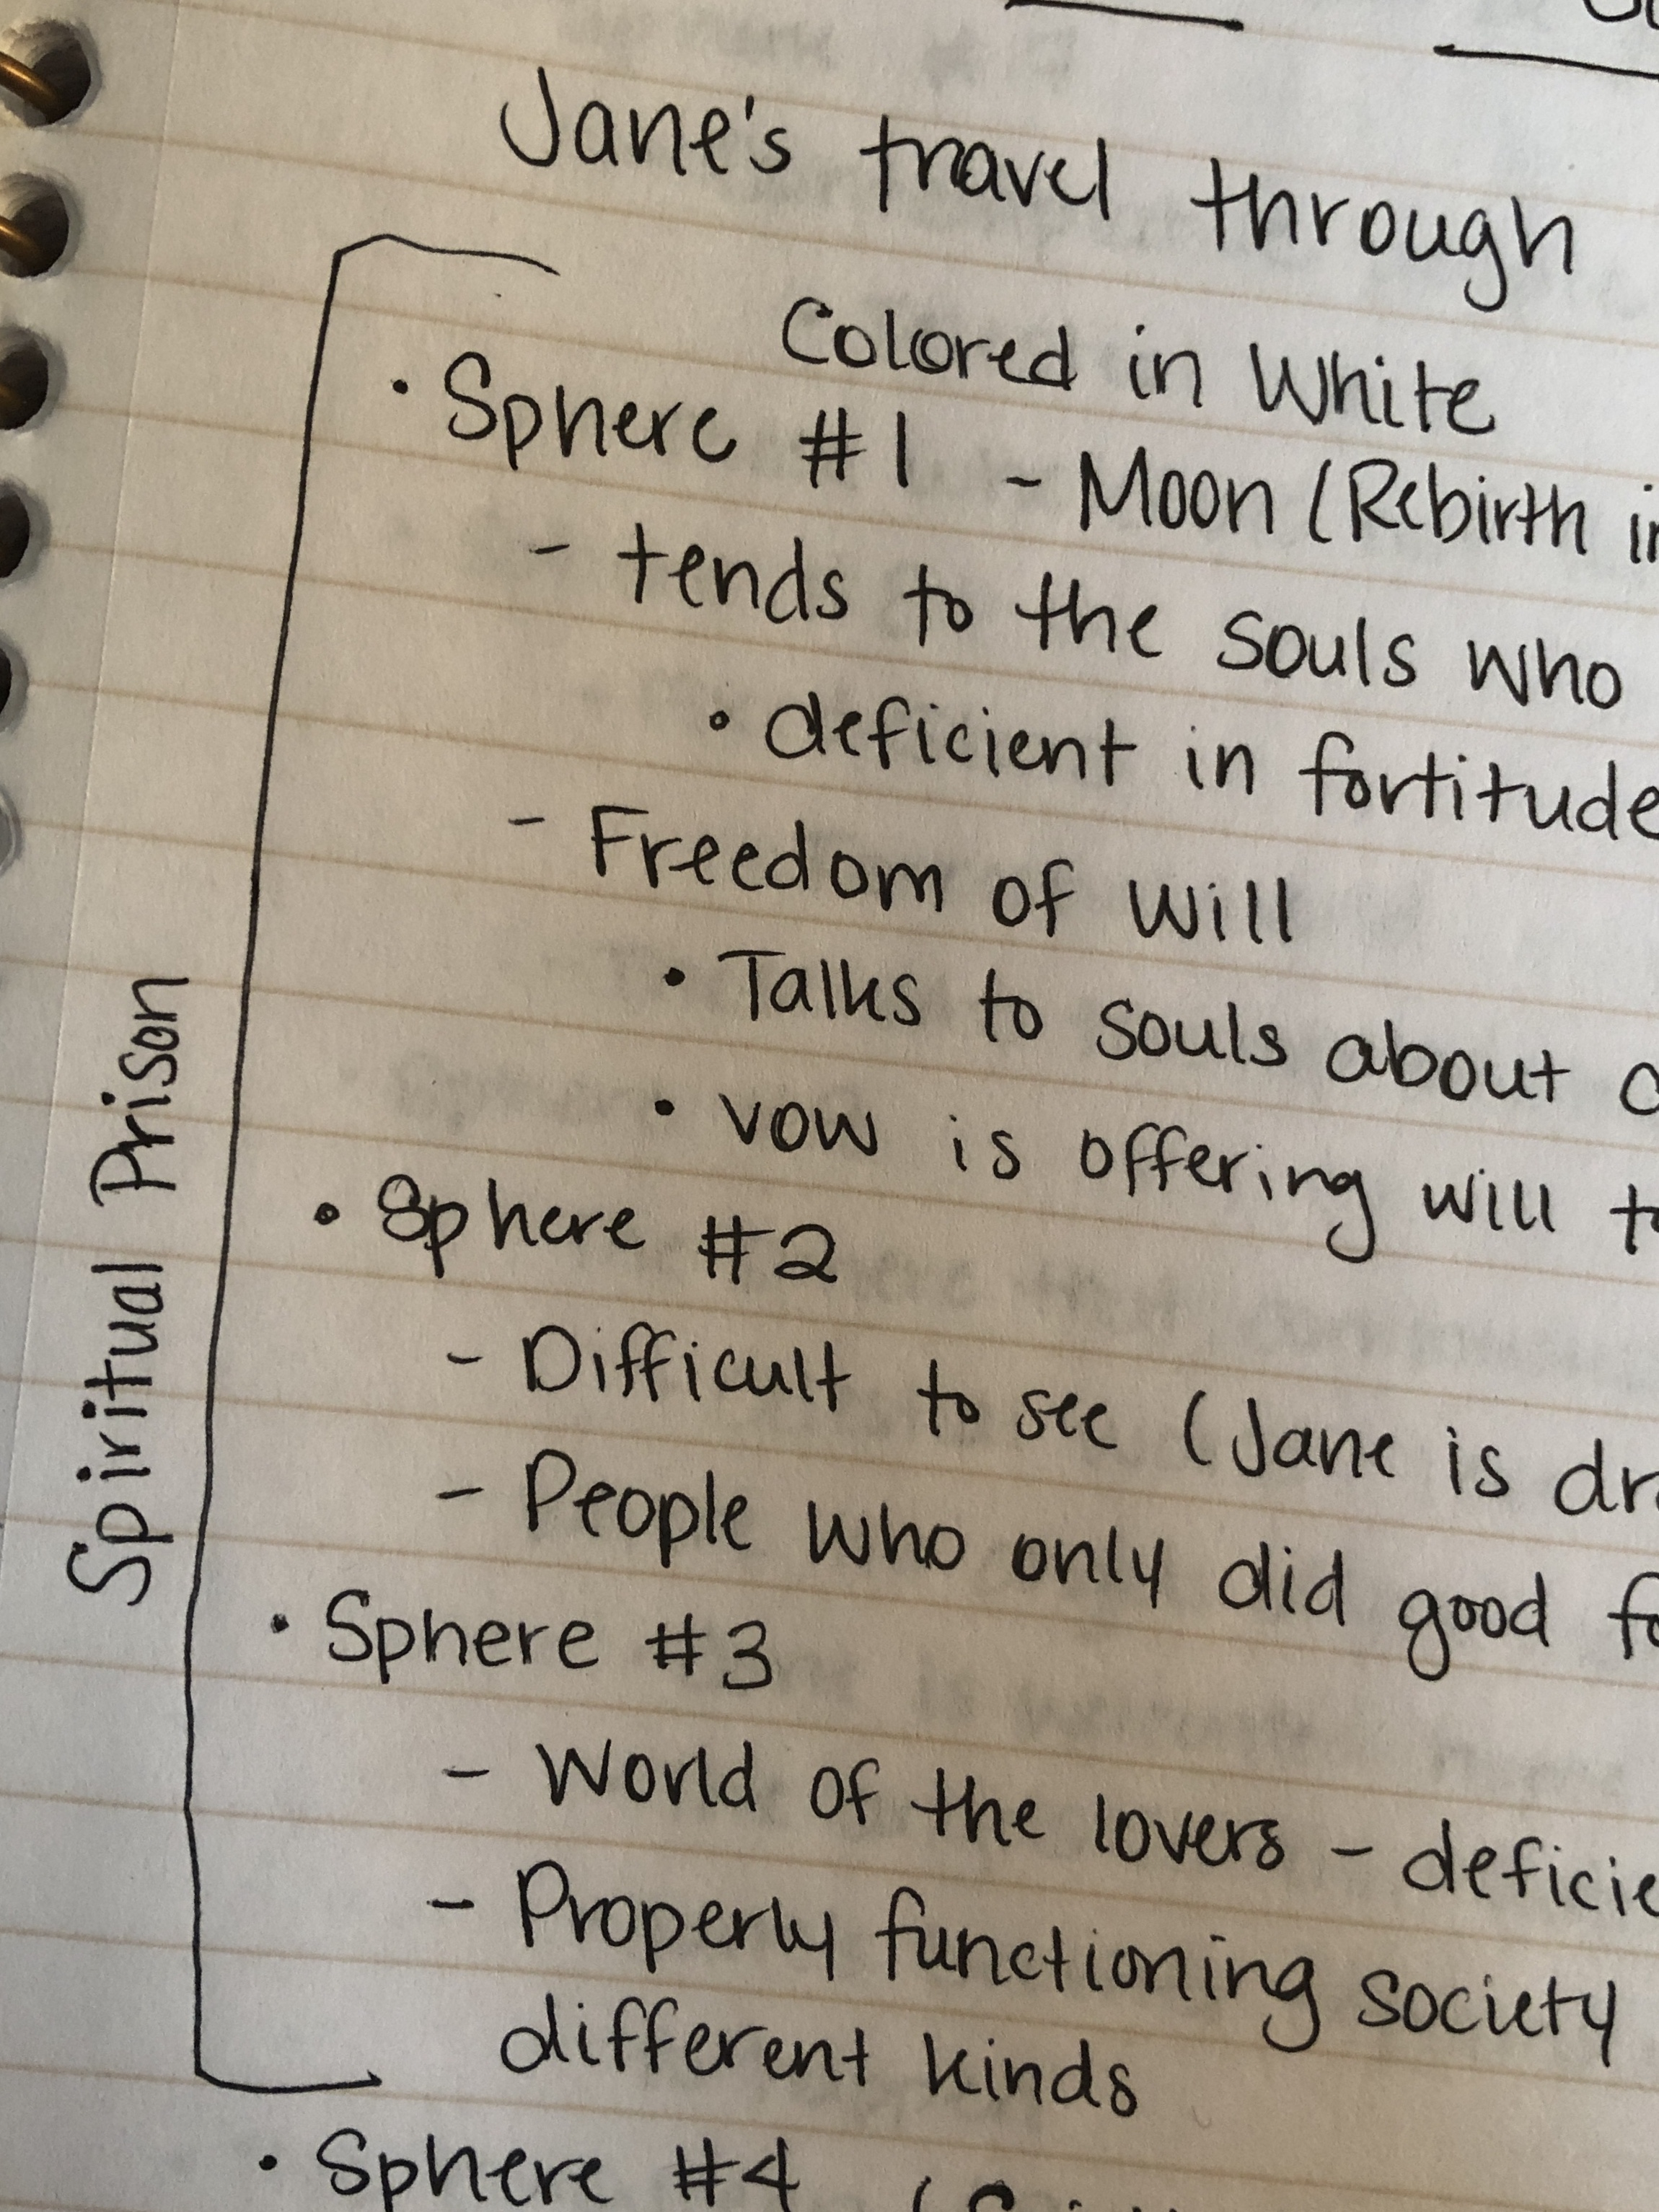 Jane's travel through
Colored in White
• Sphere #1 - Moon (Rebirth
- tends to the souls who
• deficient in fortitude
- Freedom of will
• Talks to souls about
• vow is offering will
• Sphere #2
- Difficult to see (Jane is
- People who only did good
• Sphere #3
- World of the lovers -
- Properly functioning society
different kinds
• Sphere #4
Spiritual Prison